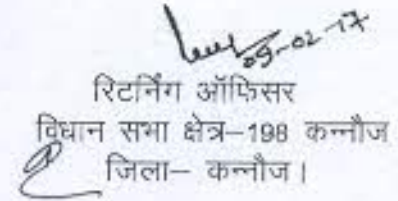 09-02-17
रिटर्निंग ऑफिसर
विधान सभा क्षेत्र–198 कन्नौज
जिला– कन्नौज।